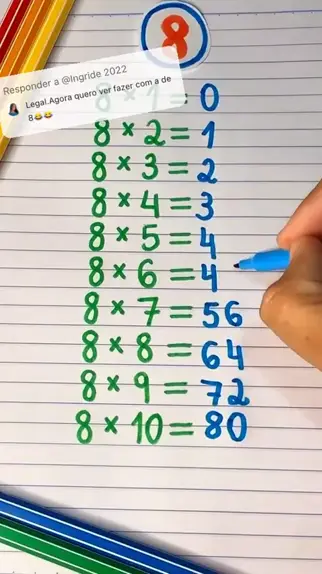 8
Responder a @Ingride 2022
Legal.Agora quero ver fazer com a de
8😂😂
8 × 1 = 0
8 × 2 = 1
8 × 3 = 2
8 × 4 = 3
8 × 5 = 4
8 × 6 = 4
8 × 7 = 56
8 × 8 = 64
8 × 9 = 72
8 × 10 = 80